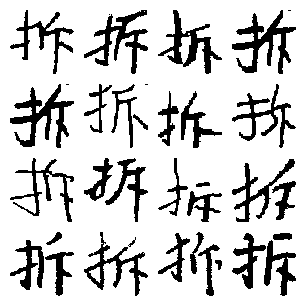 拆拆拆拆
拆拆拆拆
拆拆拆拆
拆拆拆拆